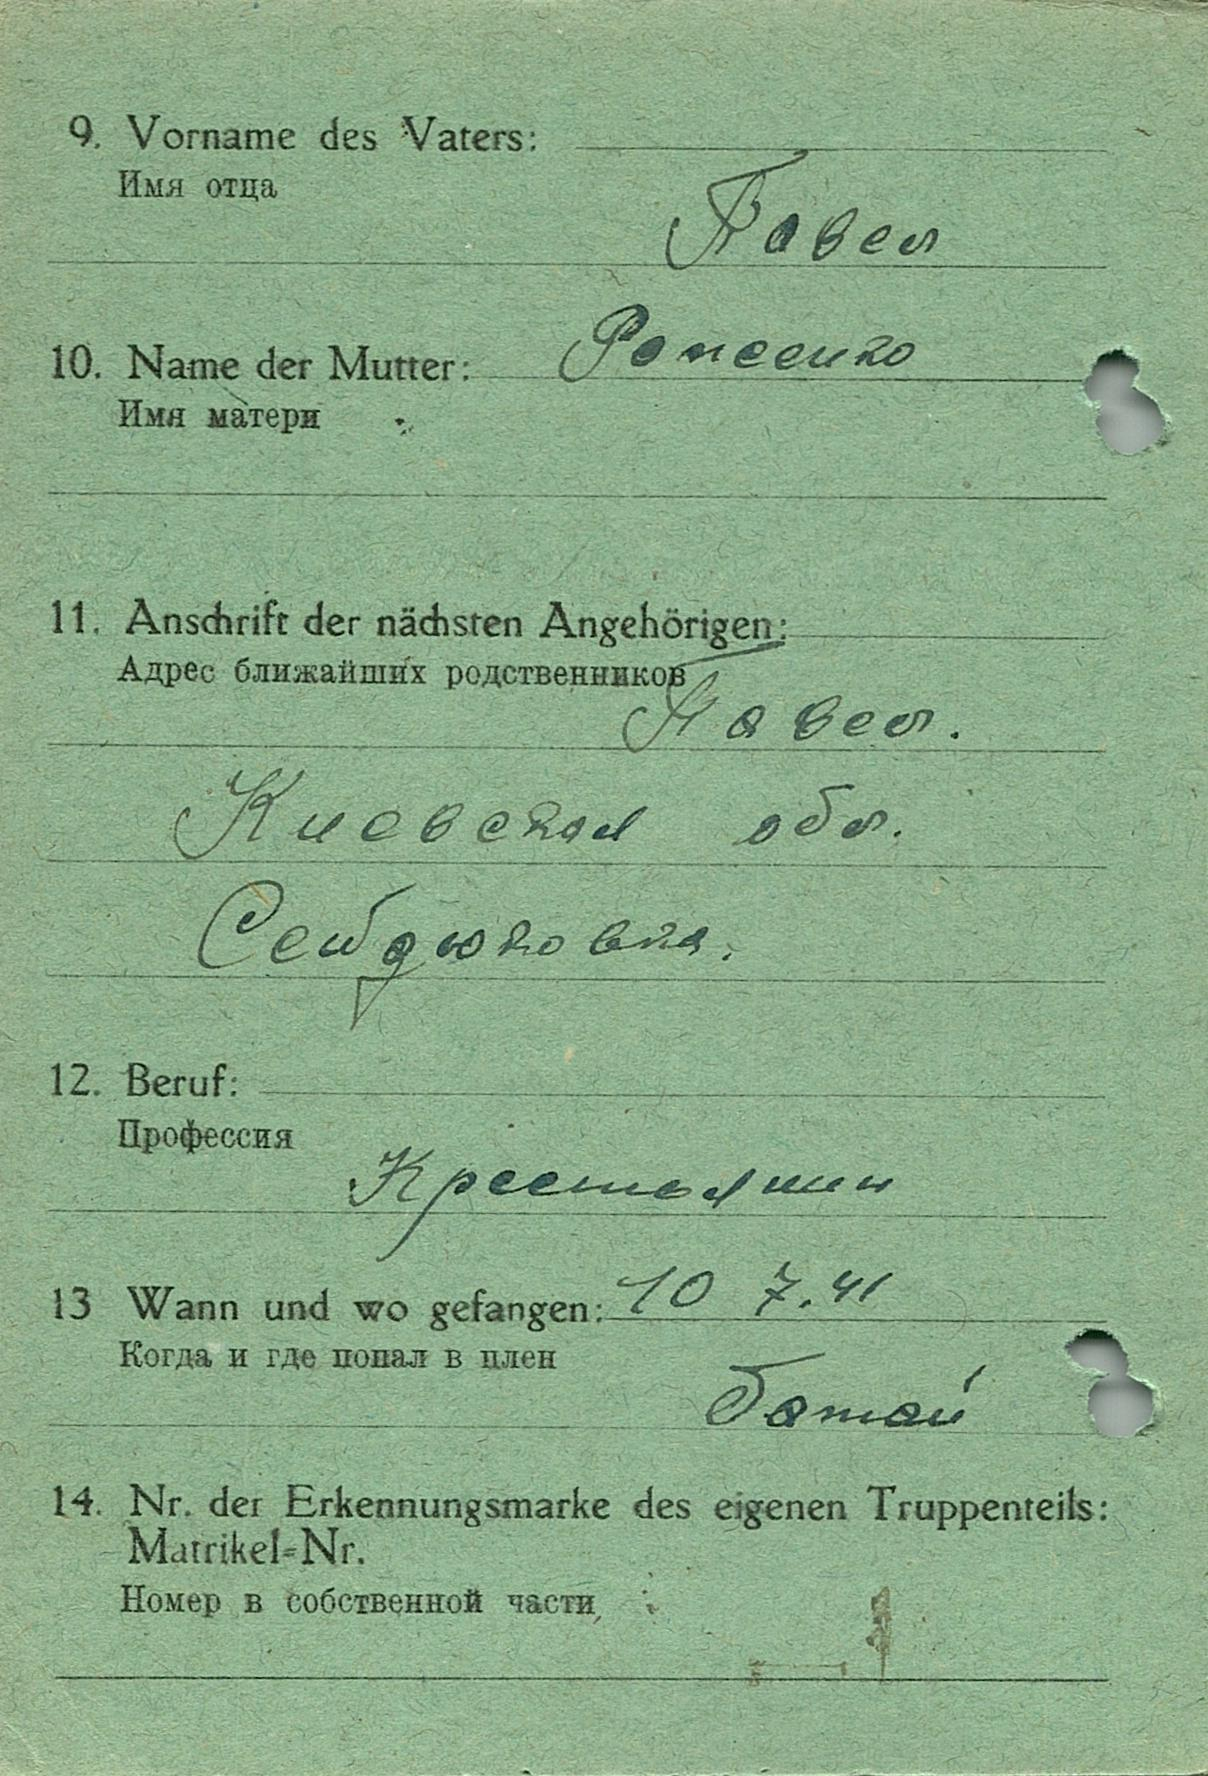 9. Vorname des Vaters:
Имя отца
Павел
10. Name der Mutter:
Имя матери
11. Anschrift der nächsten Angehörigen:
Адрес ближайших родственников
Павел.
Киевская обл.
12. Beruf:
Профессия
Крестьянин
13 Wann und wo gefangen: 10 7.41
Когда и где попал в плен
14. Nr. der Erkennungsmarke des eigenen Truppenteils:
Matrikel=Nr.
Номер в собственной части